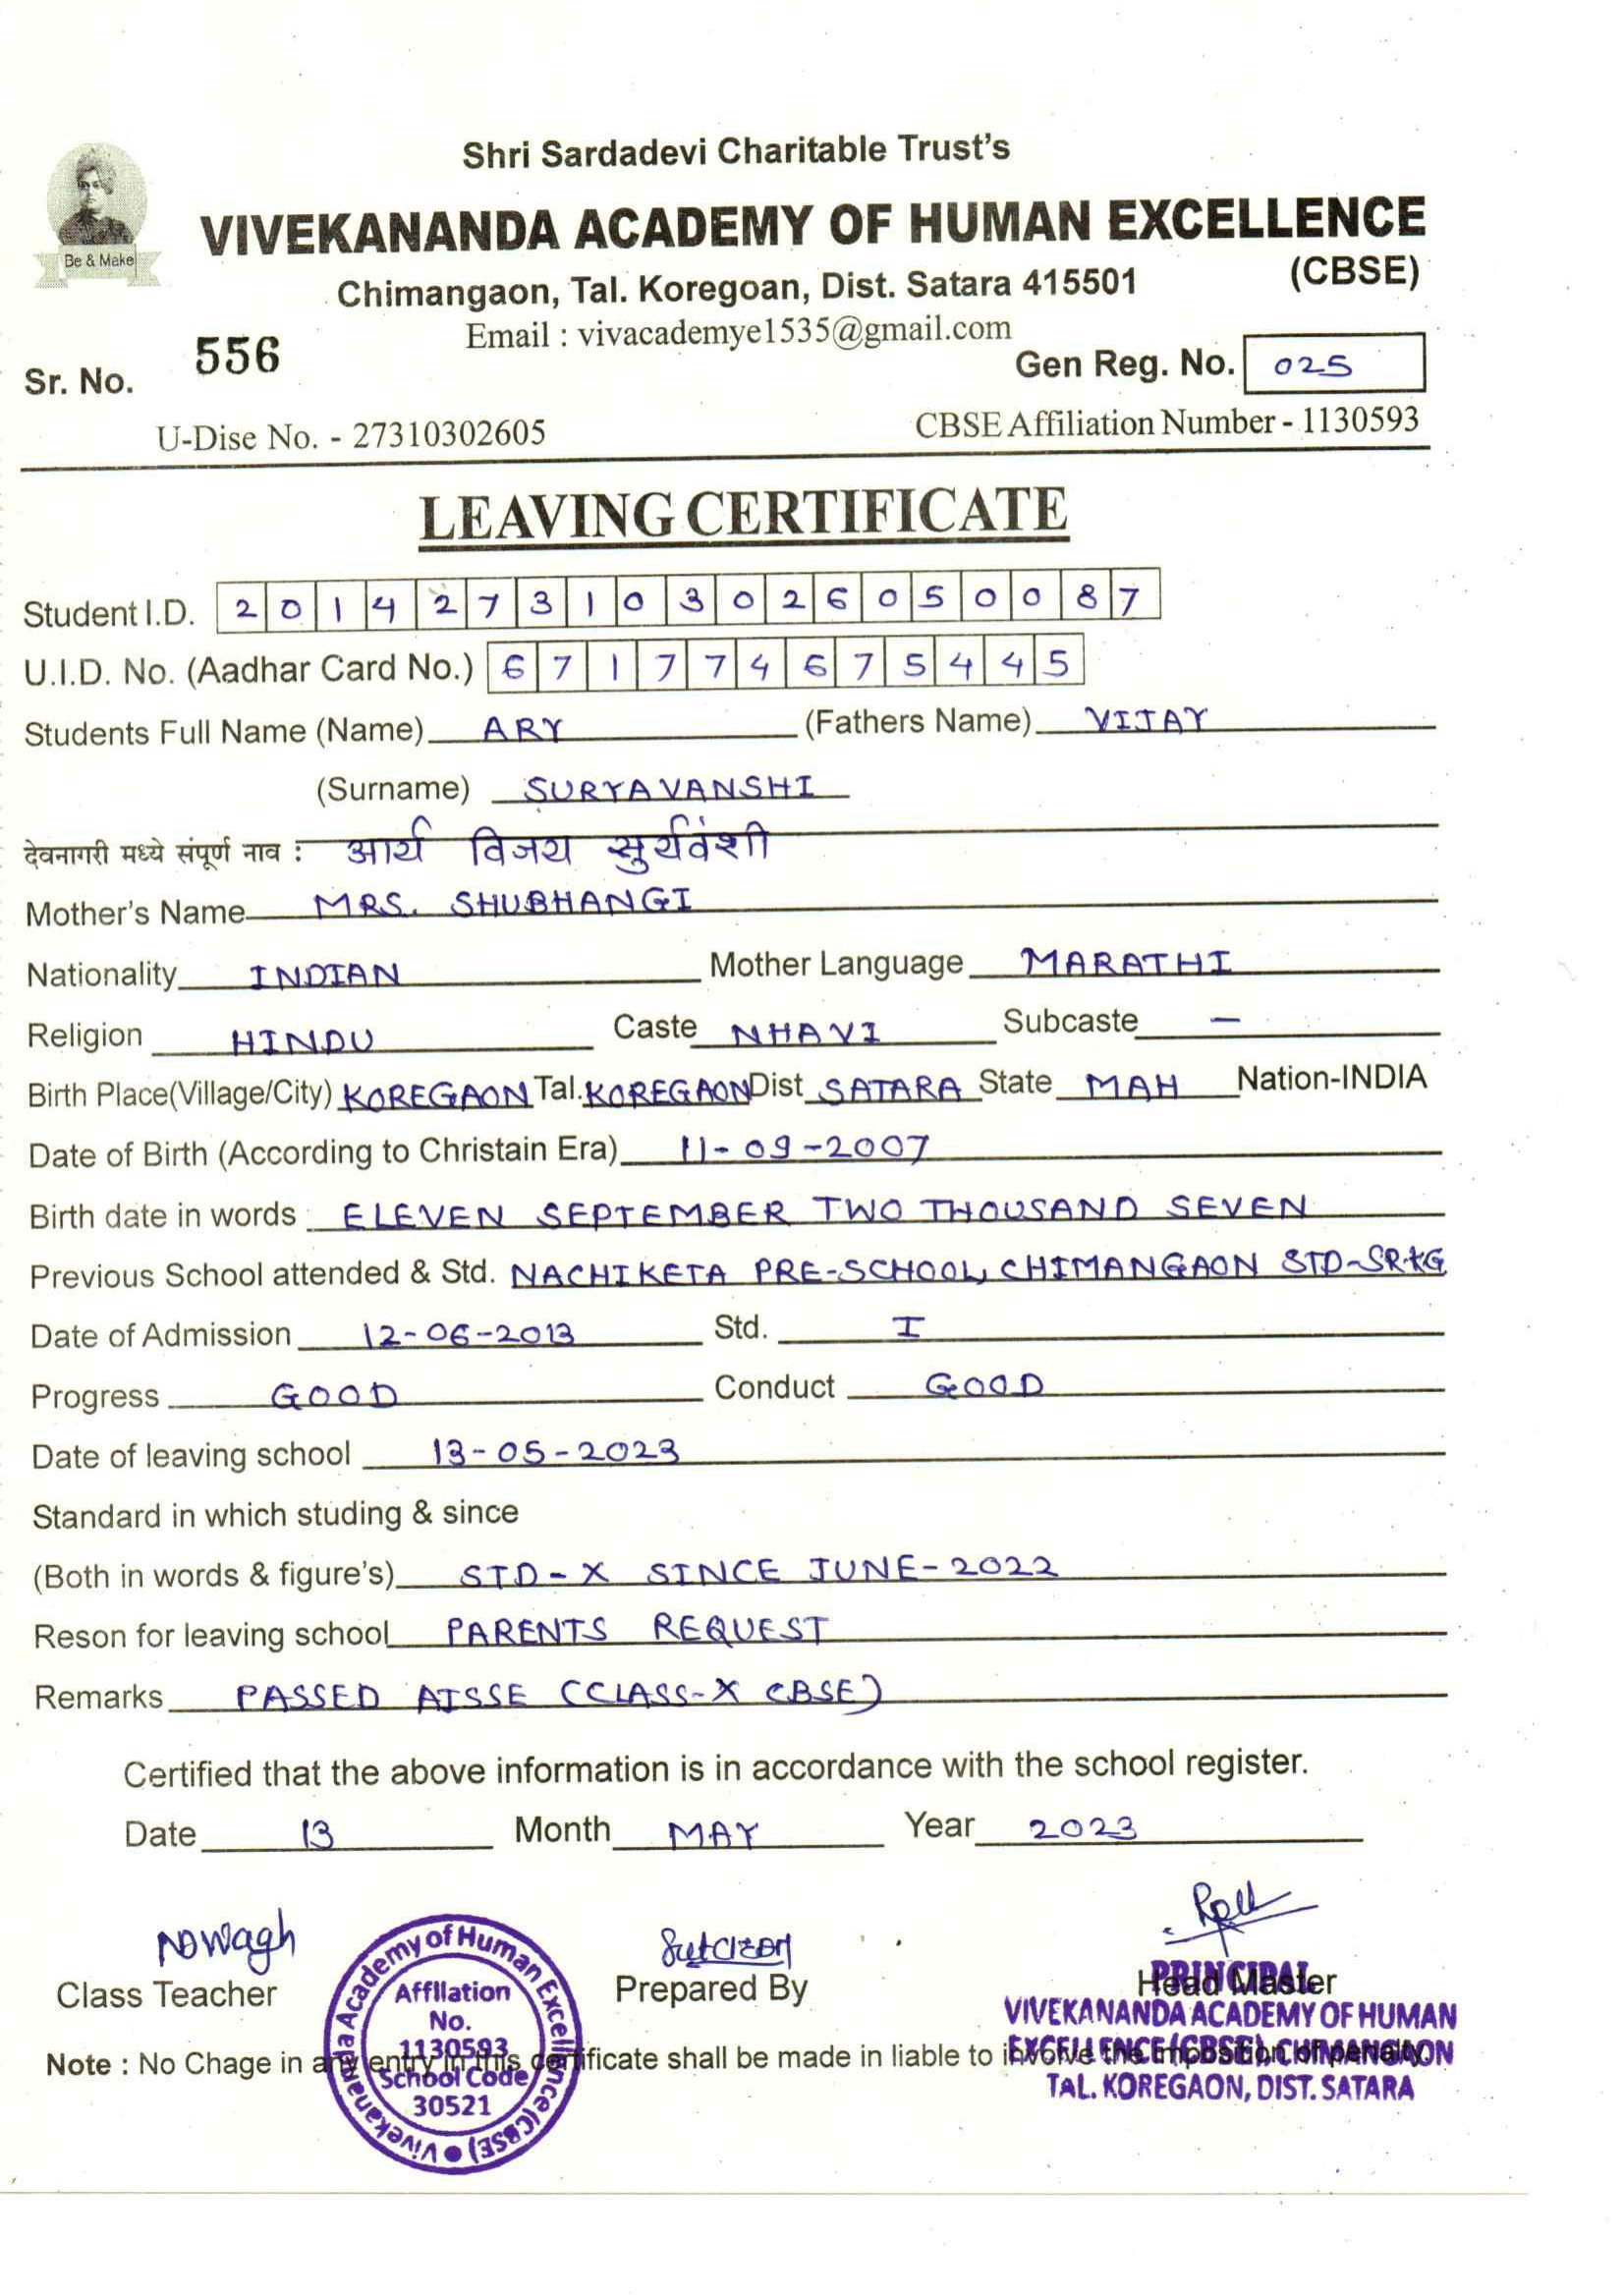 Shri Sardadevi Charitable Trust's
Be & Make
VIVEKANANDA ACADEMY OF HUMAN EXCELLENCE
(CBSE)
Chimangaon, Tal. Koregoan, Dist. Satara 415501
Email : vivacademye1535@gmail.com
Sr. No. 556 Gen Reg. No. 025
U-Dise No. - 27310302605 CBSE Affiliation Number - 1130593
LEAVING CERTIFICATE
Student I.D. 2014273103026050087
U.I.D. No. (Aadhar Card No.) 671774675445
Students Full Name (Name) ARY (Fathers Name) VIJAY
(Surname) SURYAVANSHI
देवनागरी मध्ये संपूर्ण नाव : आर्य विजय सुर्यवंशी
Mother's Name MRS. SHUBHANGI
Nationality INDIAN Mother Language MARATHI
Religion HINDU Caste NHAVI Subcaste –
Birth Place(Village/City) KOREGAON Tal. KOREGAON Dist SATARA State MAH Nation-INDIA
Date of Birth (According to Christain Era) 11-09-2007
Birth date in words ELEVEN SEPTEMBER TWO THOUSAND SEVEN
Previous School attended & Std. NACHIKETA PRE-SCHOOL, CHIMANGAON STD-SR.KG
Date of Admission 12-06-2013 Std. I
Progress GOOD Conduct GOOD
Date of leaving school 13-05-2023
Standard in which studing & since
(Both in words & figure's) STD-X SINCE JUNE-2022
Reson for leaving school PARENTS REQUEST
Remarks PASSED AISSE (CLASS-X CBSE)
Certified that the above information is in accordance with the school register.
Date 13 Month MAY Year 2023
Class Teacher Prepared By Head Master
PRINCIPAL
VIVEKANANDA ACADEMY OF HUMAN
EXCELLENCE (CBSE), CHIMANGAON
TAL. KOREGAON, DIST. SATARA
Vivekananda Academy of Human Excellence (CBSE)
Affilation
No.
1130593
School Code
30521
Note : No Chage in any entry in this certificate shall be made in liable to involve the imposition of penalty.